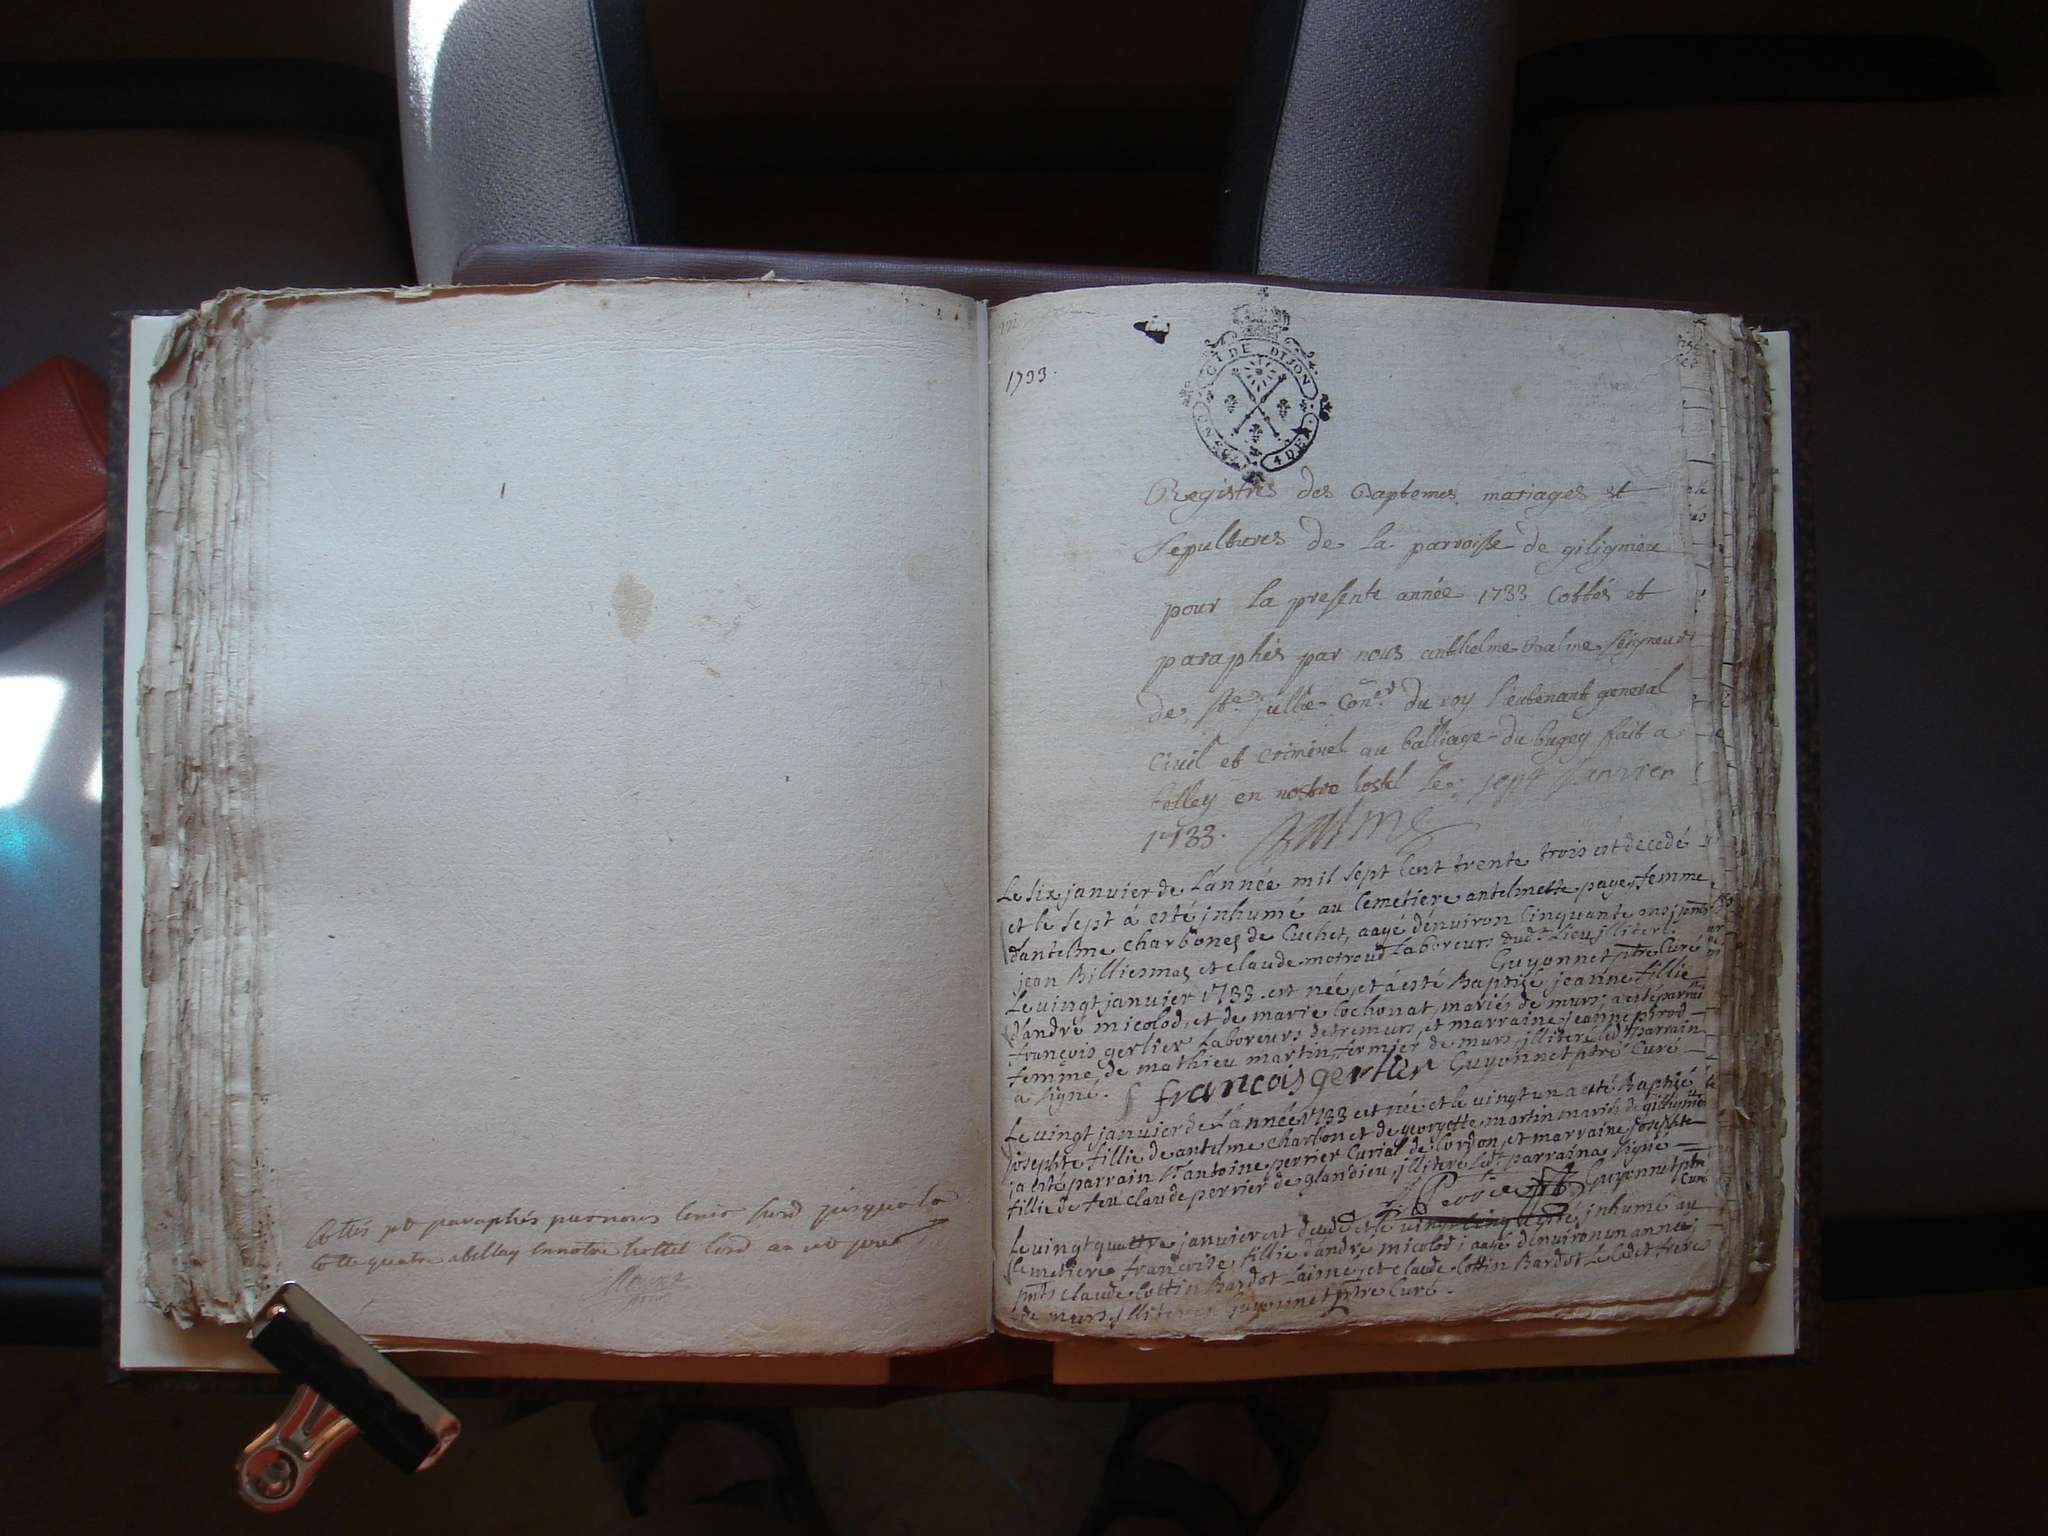 Cottés et paraphés par nous jusque la
cotte quatre a bellay en notre hottel
1733.
G^I DE DIJON
4 DEN
Registres des Baptemes mariages et
sepultures de la parroisse de gilignieu
pour la presente année 1733 Cottés et
paraphés par nous anthelme Balme seigneur
de s^te. jullie Con^er du roy lieutenant general
Civil et criminel au balliage du bugey fait a
belley en nostre hostel le sept janvier
1733. Balme
Le six janvier de L'année mil sept Cent trente trois est decedé
et le sept á esté jnhumé au Cemetiere antelmette paye, femme
d'antelme Charbonez de Cuchet, aagé d'énuiron Cinquante ans, pnts
jean Billiemaz et claude moiroud Laboreurs dud^t. Lieu jlliterés.
Guyonnet ptre Curé
Le vingt janvier 1733. est née, et á esté Baptisé jeanne fillie
d'andré micolod, et de marie Cochonat, mariés de murs, a esté parrain
françois gerlier Laboreurs de murs, et marraine jeanne
femme de mathieu martin, fermier de murs, jlliteré, led^t parrain
a signé. francois gerlier Guyonnet ptre Curé
Le vingt janvier de L'année 1733 est née et le vingt un a esté Baptisé
josephte fillie de antelme Charbon et de georgette martin mariés de gillignieu
ja esté parrain s^r antoine perrier Curial de Cordon, et marraine josephte
fillie de feu claude perrier de glandieu, jlliteré led^t. parrain a signé
Guyonnet ptre
Curé
Le vingt quattre janvier est decedé et le vingt cinq a esté jnhumé au
Cemetiere francoise, fillie d'andré micolod, aagé d'enuiron un année,
pnts claude Cottin Bardot Laisne, et claude Cottin Bardot Le Cadet freres
de murs, jlliterés Guyonnet ptre Curé.